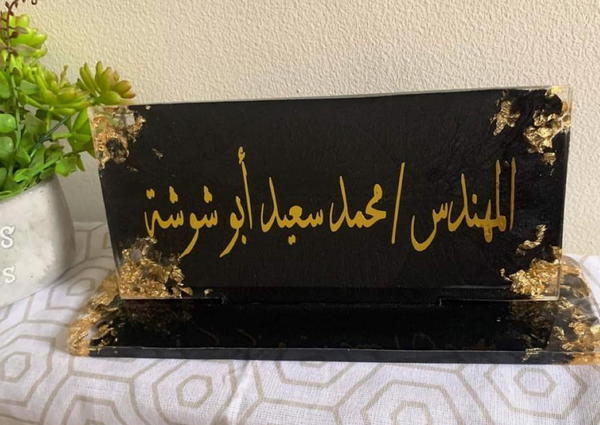 المهندس / محمد سعيد أبو شوشة